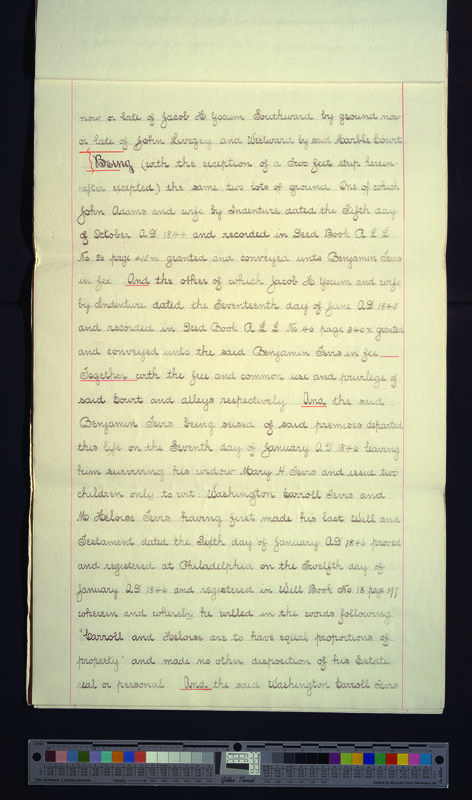 now or late of Jacob H Yocum Southward by ground now
or late of John Livezey and Westward by said Marble Court
Being (with the exception of a Two feet strip herein-
-after excepted) the same two lots of ground One of which
John Adams and wife by Indenture dated the Fifth day
of October A.D 1844 and recorded in Deed Book R L L
No 26 page 415 &c granted and conveyed unto Benjamin Tevis
in fee And the other of which Jacob H Yocum and wife
by Indenture dated the Seventeenth day of June A.D 1845
and recorded in Deed Book R L L No 40 page 340 &c granted
and conveyed unto the said Benjamin Tevis in fee
Together with the fee and common use and privilege of
said Court and alleys respectively And the said
Benjamin Tevis being seised of said premises departed
this life on the Seventh day of January A.D 1846 leaving
him surviving his widow Mary H Tevis and issue two
children only to wit Washington Carroll Tevis and
M Heloise Tevis having first made his last Will and
Testament dated the Fifth day of January A.D 1846 proved
and registered at Philadelphia on the Twelfth day of
January A.D 1846 and registered in Will Book No. 18 page 197
wherein and whereby he willed in the words following
"Carroll and Heloise are to have equal proportions of
property" and made no other disposition of his Estate
real or personal And the said Washington Carroll Tevis